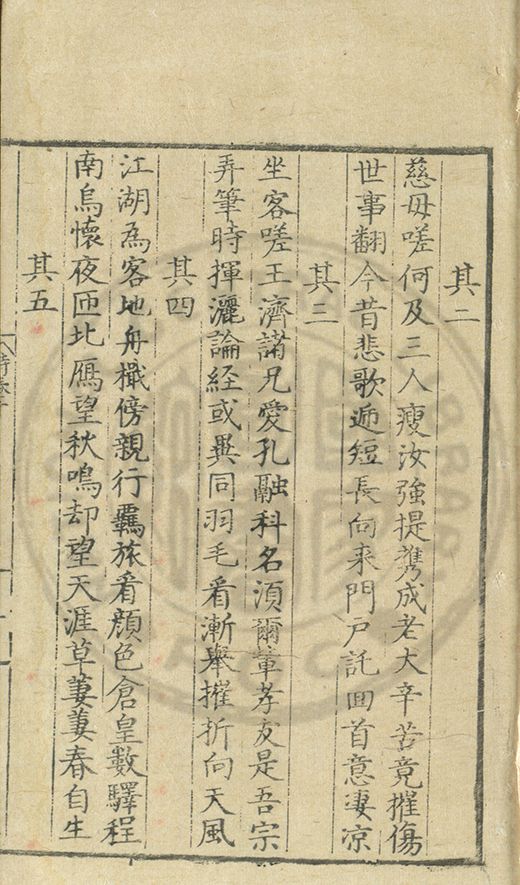 其二
慈母嗟何及三人瘦汝強提攜成老大辛苦竟摧傷
世事翻今昔悲歌遞短長向来門戶託回首意凄凉
其三
坐客嗟王濟諸兄愛孔融科名須爾輩孝友是吾宗
弄筆時揮灑論経或異同羽毛看漸舉摧折向天風
其四
江湖為客地舟檝傍親行羈旅看顔色倉皇數驛程
南烏懷夜匝北鴈望秋鳴却望天涯草萋萋春自生
其五